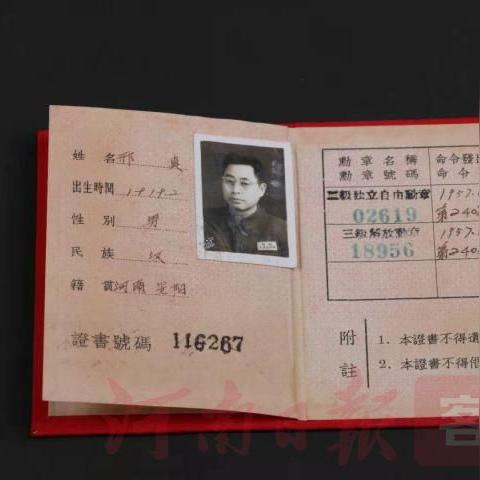 姓名 邢真
出生時間 1919.2
性別 男
民族 汉
籍貫 河南
證書號碼 116267
勳章名稱 命令發
勳章號碼 命令
三級独立自由勳章 1957.
02619 第240
三級解放勳章 1957.
18956 第240
附註
1. 本證書不得遺
2. 本證書不得借
河南日報
客